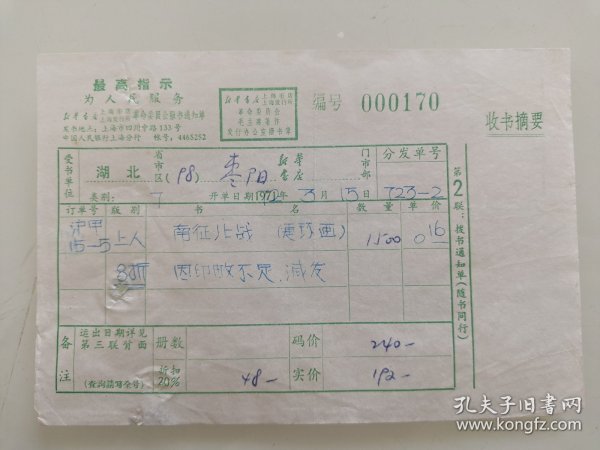 最高指示
为人民服务
新华书店 上海书店 上海发行所 革命委员会拨书通知单
发书地点：上海市四川中路133号
中国人民银行上海分行 帐号：4465252
新华书店 上海书店 上海发行所
革命委员会
毛主席著作
发行办公室拨书章
编号 000170
收书摘要
受书单位 湖北 省市区 (98) 枣阳 新华书店 门市部 分发单号
类别： 7 开单日期1972年3月15日 723-2
订单号 级别 书名 数量 单价
沪甲 15-5 上人 南征北战（电影画） 1500 0.16
8折 因印数不定，减发
备注 运出日期详见第三联背面 册数 码价 240-
(查询请写全号) 折扣20% 48- 实价 192-
第2联：拨书通知单（随书同行）
孔夫子旧书网
www.kongfz.com